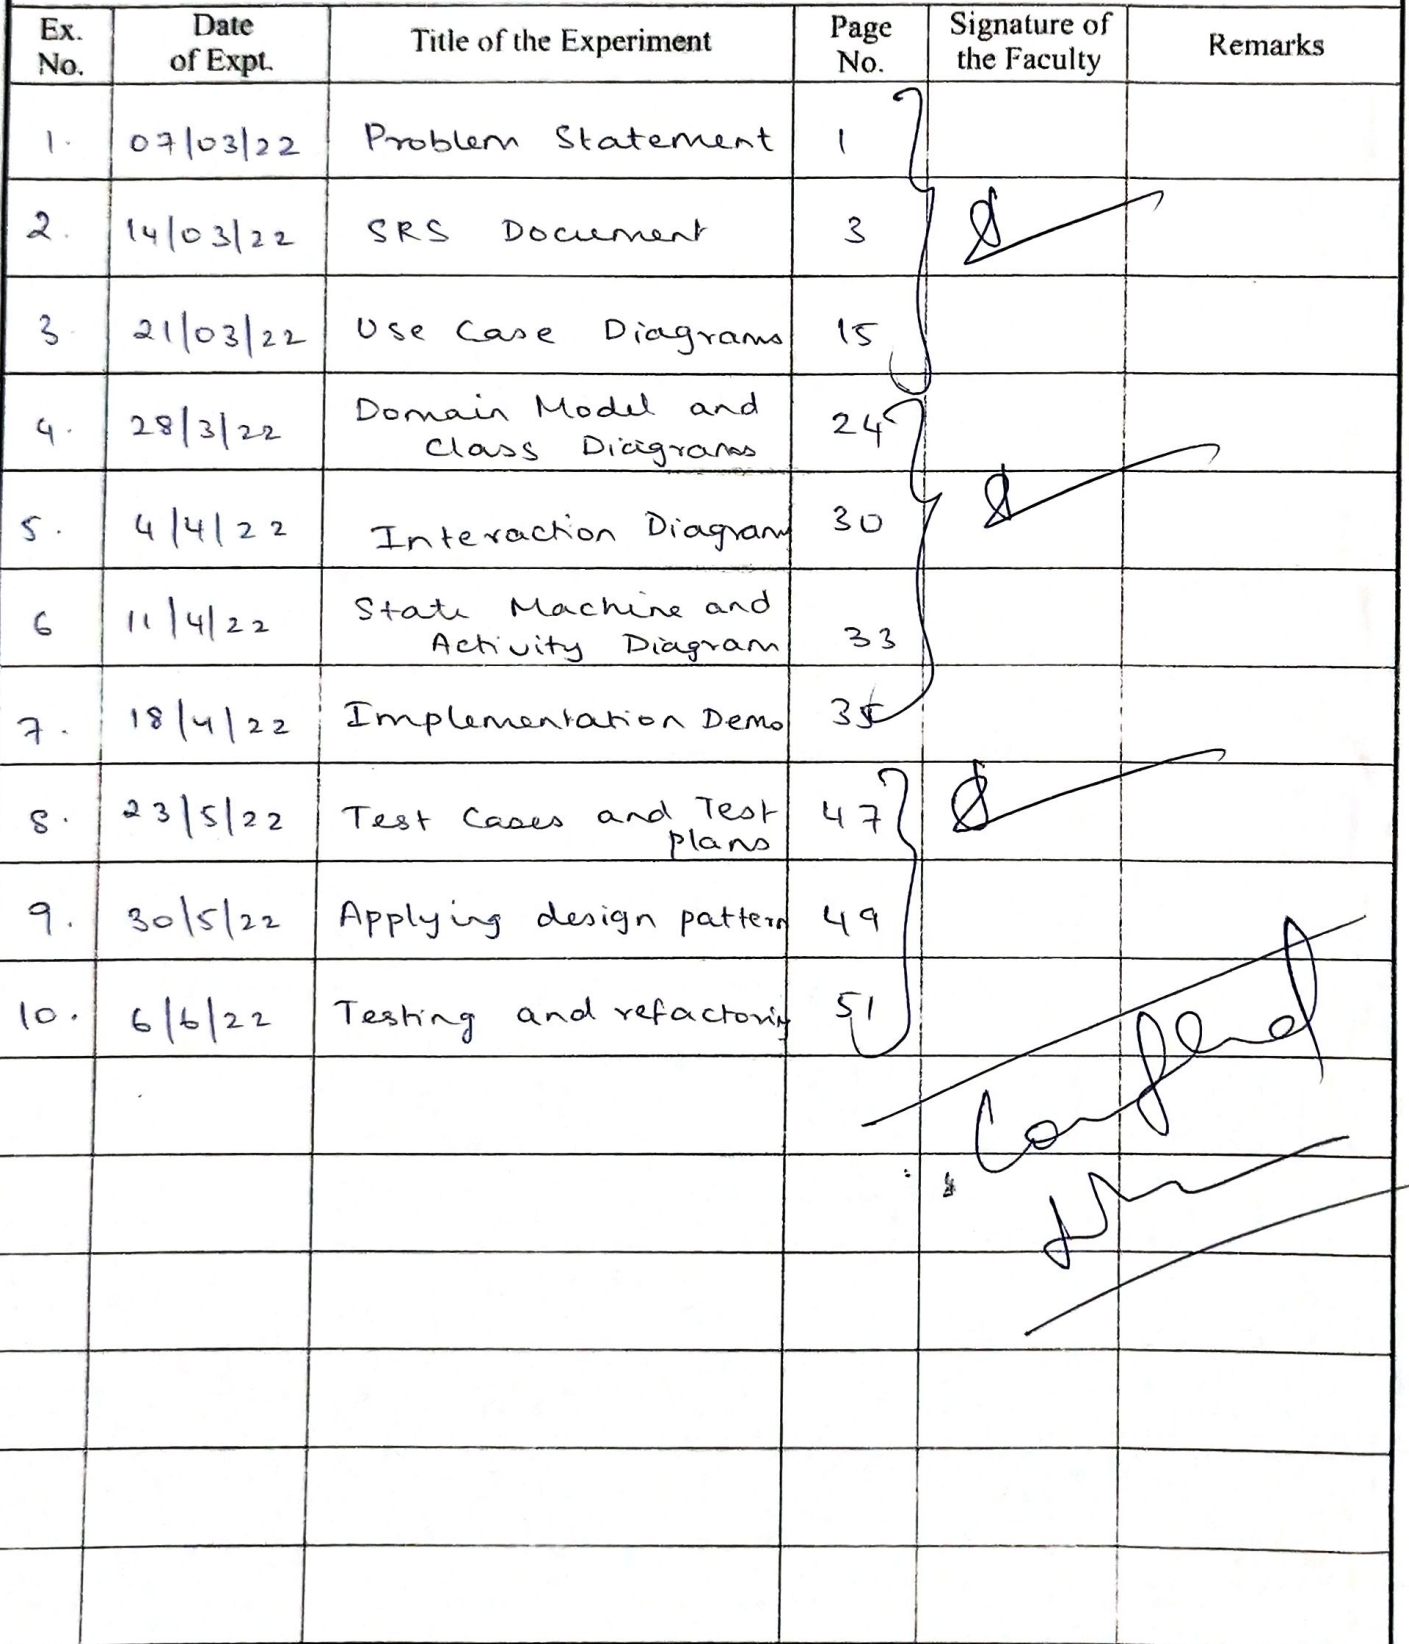 Ex. No. Date of Expt. Title of the Experiment Page No. Signature of the Faculty Remarks
1. 07/03/22 Problem Statement 1
2. 14/03/22 SRS Document 3
3. 21/03/22 Use Case Diagrams 15
4. 28/3/22 Domain Model and Class Diagrams 24
5. 4/4/22 Interaction Diagrams 30
6 11/4/22 State Machine and Activity Diagram 33
7. 18/4/22 Implementation Demo 35
8. 23/5/22 Test Cases and Test plans 47
9. 30/5/22 Applying design pattern 49
10. 6/6/22 Testing and refactoring 51